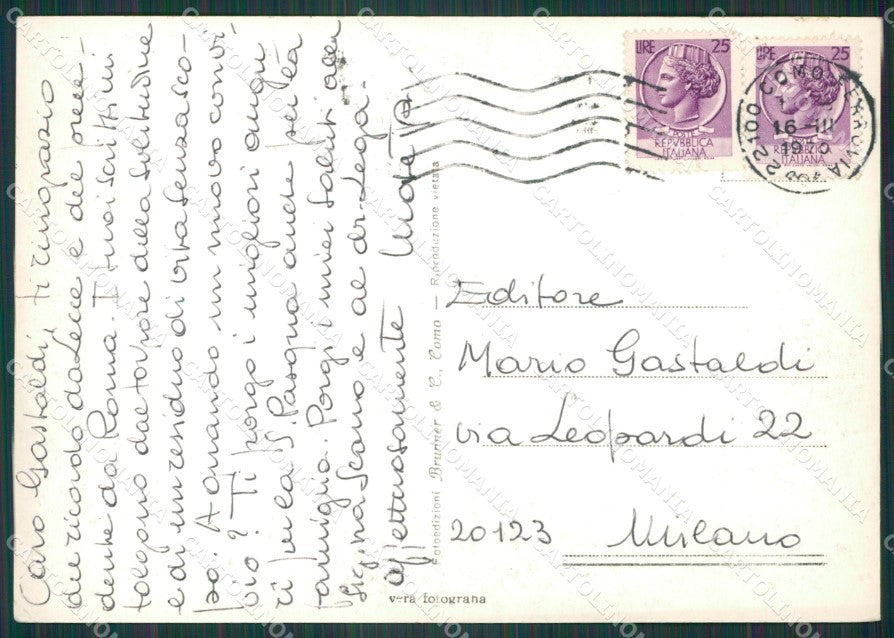 Caro Gastaldi, ti ringrazio
del ricordo da Lecce e del prece-
dente da Roma. I tuoi scritti mi
tolgono dal torpore della solitudine
e di un residuo di vita senza sco-
po. A quando un nuovo convi
vio? Ti porgo i migliori augu
ri per la S. Pasqua anche per la
famiglia. Porgi i miei saluti alla
Sig.na Scano e al dr Lega.
affettuosamente
LIRE 25
POSTE
REPVBBLICA
ITALIANA
LIRE 25
REPVBBLICA
ITALIANA
22100 COMO FERROVIA
16-III
1970
Editore
Mario Gastaldi
via Leopardi 22
20123 Milano
Fotoedizioni Brunner & C., Como — Riproduzione vietata
vera fotografia
CARTOLINOMANIA